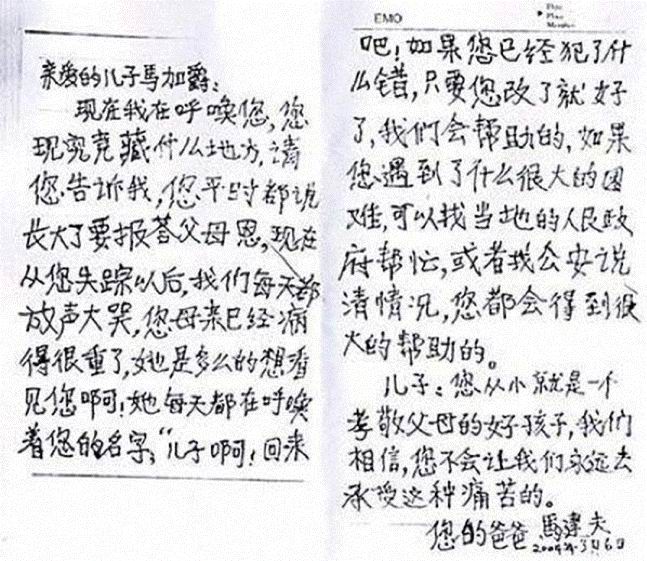 亲爱的儿子馬加爵:
现在我在呼唤您,您
现究竟藏什么地方,请
您告诉我,您平时都说
长大了要报答父母恩,现在
从您失踪以后,我们每天都
放声大哭,您母亲已经病
得很重了,她也是多么的想看
见您啊!她每天都在呼唤
着您的名字,“儿子啊!回来
EMO
吧!如果您已经犯了什
么错,只要您改了就好
了,我们会帮助的,如果
您遇到了什么很大的困
难,可以找当地的人民政
府帮忙,或者找公安说
清情况,您都会得到很
大的帮助的。
儿子:您从小就是一个
孝敬父母的好孩子,我们
相信,您不会让我们永远去
承受这种痛苦的。
您的爸爸 馬建夫
2004年3月6日